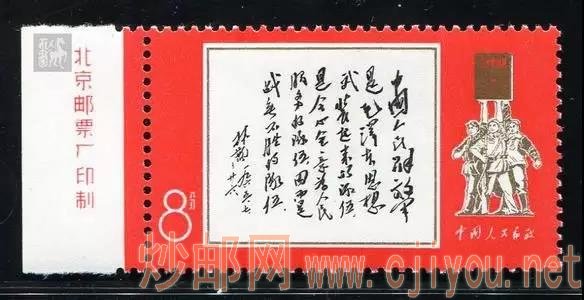 中国人民解放军
是毛泽东思想
武装起来的队伍，
是全心全意为人民
服务的队伍，因而是
战无不胜的队伍。
林彪
廿六
8分
中国人民邮政
北京邮票厂印制
炒邮网 www.cjiyou.net